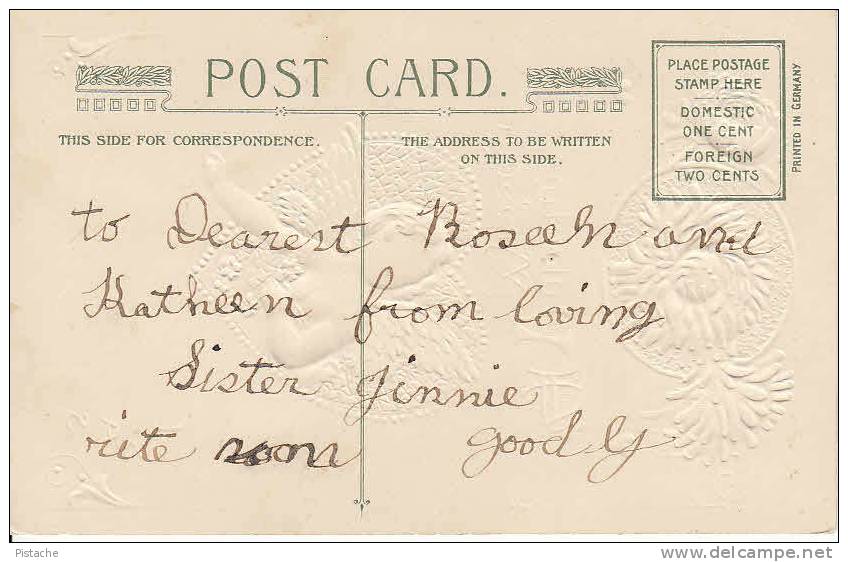 POST CARD.
THIS SIDE FOR CORRESPONDENCE.
THE ADDRESS TO BE WRITTEN
ON THIS SIDE.
PLACE POSTAGE
STAMP HERE
DOMESTIC
ONE CENT
FOREIGN
TWO CENTS
PRINTED IN GERMANY
to Dearest and
Katheen from loving
Sister Jinnie
rite soon good By
Pistache
delcampe.net